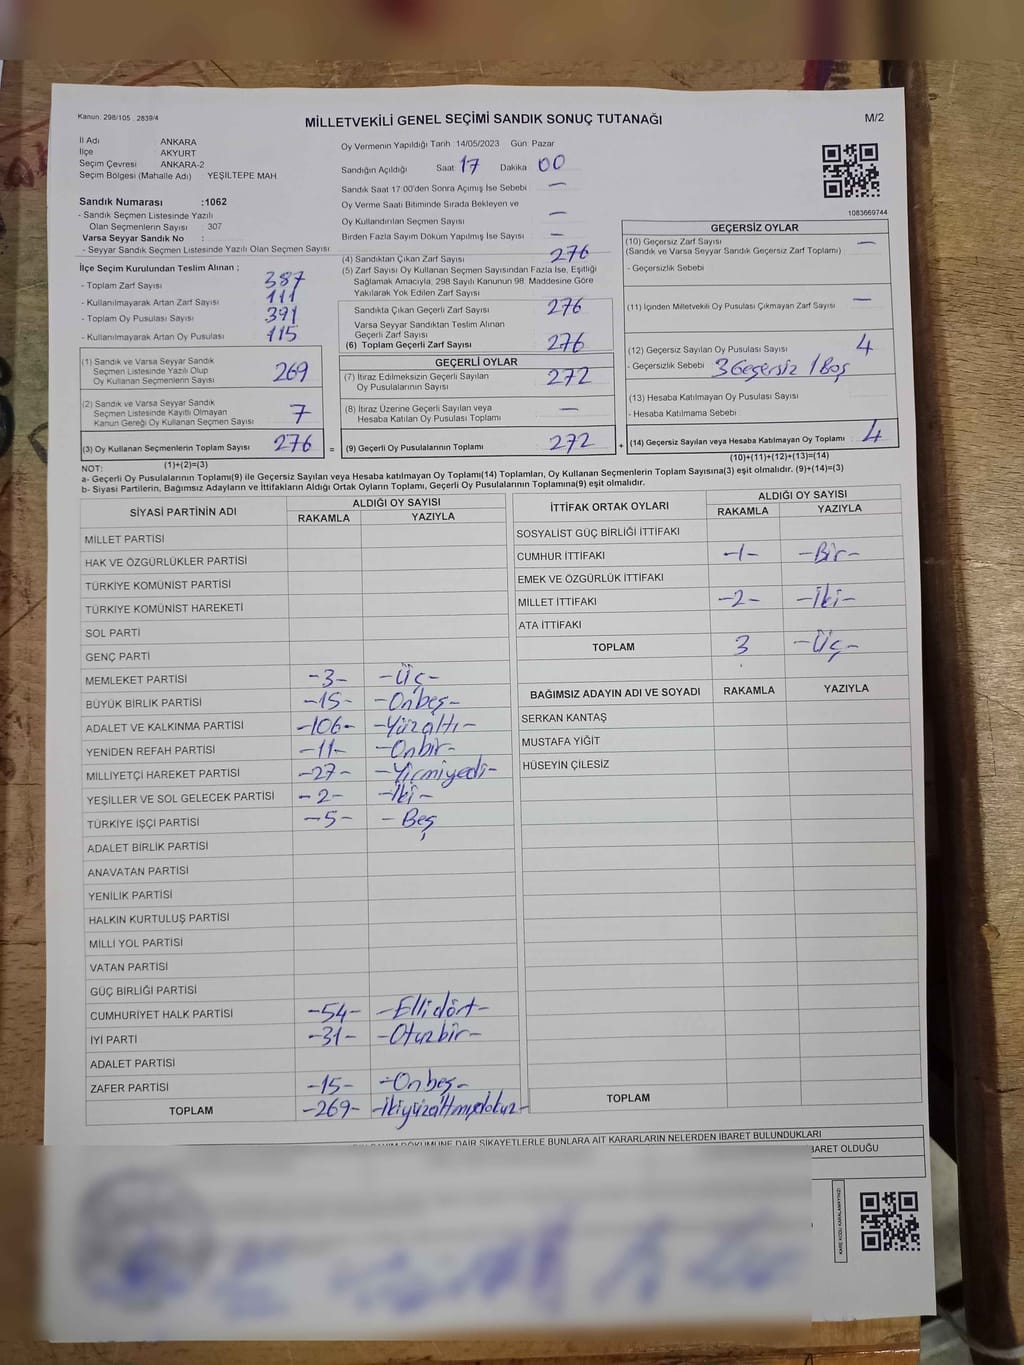 Kanun. 298/105 , 2839/4
MİLLETVEKİLİ GENEL SEÇİMİ SANDIK SONUÇ TUTANAĞI
M/2
İl Adı ANKARA
İlçe AKYURT
Seçim Çevresi ANKARA-2
Seçim Bölgesi (Mahalle Adı) YEŞİLTEPE MAH
Oy Vermenin Yapıldığı Tarih 14/05/2023 Gün: Pazar
Sandığın Açıldığı Saat 17 Dakika 00
Sandık Saat 17:00'den Sonra Açımış İse Sebebi —
Oy Verme Saati Bitiminde Sırada Bekleyen ve
Oy Kullandırılan Seçmen Sayısı —
Birden Fazla Sayım Döküm Yapılmış İse Sayısı —
Sandık Numarası :1062
- Sandık Seçmen Listesinde Yazılı
Olan Seçmenlerin Sayısı 307
Varsa Seyyar Sandık No :
- Seyyar Sandık Seçmen Listesinde Yazılı Olan Seçmen Sayısı:
1083669744
İlçe Seçim Kurulundan Teslim Alınan ;
- Toplam Zarf Sayısı 387
- Kullanılmayarak Artan Zarf Sayısı 111
- Toplam Oy Pusulası Sayısı 391
- Kullanılmayarak Artan Oy Pusulası 115
(1) Sandık ve Varsa Seyyar Sandık
Seçmen Listesinde Yazılı Olup
Oy Kullanan Seçmenlerin Sayısı 269
(2) Sandık ve Varsa Seyyar Sandık
Seçmen Listesinde Kayıtlı Olmayan
Kanun Gereği Oy Kullanan Seçmen Sayısı 7
(3) Oy Kullanan Seçmenlerin Toplam Sayısı 276 =
(1)+(2)=(3)
(4) Sandıktan Çıkan Zarf Sayısı 276
(5) Zarf Sayısı Oy Kullanan Seçmen Sayısından Fazla İse, Eşitliği
Sağlamak Amacıyla, 298 Sayılı Kanunun 98. Maddesine Göre
Yakılarak Yok Edilen Zarf Sayısı
Sandıkta Çıkan Geçerli Zarf Sayısı 276
Varsa Seyyar Sandıktan Teslim Alınan
Geçerli Zarf Sayısı
(6) Toplam Geçerli Zarf Sayısı 276
GEÇERLİ OYLAR
(7) İtiraz Edilmeksizin Geçerli Sayılan
Oy Pusulalarının Sayısı 272
(8) İtiraz Üzerine Geçerli Sayılan veya
Hesaba Katılan Oy Pusulası Toplamı —
(9) Geçerli Oy Pusulalarının Toplamı 272 +
GEÇERSİZ OYLAR
(10) Geçersiz Zarf Sayısı —
(Sandık ve Varsa Seyyar Sandık Geçersiz Zarf Toplamı)
- Geçersizlik Sebebi
(11) İçinden Milletvekili Oy Pusulası Çıkmayan Zarf Sayısı —
(12) Geçersiz Sayılan Oy Pusulası Sayısı 4
- Geçersizlik Sebebi 3 Geçersiz 1 Boş
(13) Hesaba Katılmayan Oy Pusulası Sayısı
- Hesaba Katılmama Sebebi
(14) Geçersiz Sayılan veya Hesaba Katılmayan Oy Toplamı 4
(10)+(11)+(12)+(13)=(14)
NOT:
a- Geçerli Oy Pusulalarının Toplamı(9) ile Geçersiz Sayılan veya Hesaba katılmayan Oy Toplamı(14) Toplamları, Oy Kullanan Seçmenlerin Toplam Sayısına(3) eşit olmalıdır. (9)+(14)=(3)
b- Siyasi Partilerin, Bağımsız Adayların ve İttifakların Aldığı Ortak Oyların Toplamı, Geçerli Oy Pusulalarının Toplamına(9) eşit olmalıdır.
SİYASİ PARTİNİN ADI ALDIĞI OY SAYISI
RAKAMLA YAZIYLA
MİLLET PARTİSİ
HAK VE ÖZGÜRLÜKLER PARTİSİ
TÜRKİYE KOMÜNİST PARTİSİ
TÜRKİYE KOMÜNİST HAREKETİ
SOL PARTİ
GENÇ PARTİ
MEMLEKET PARTİSİ -3- -Üç-
BÜYÜK BİRLİK PARTİSİ -15- -Onbeş-
ADALET VE KALKINMA PARTİSİ -106- -Yüzaltı-
YENİDEN REFAH PARTİSİ -11- -Onbir-
MİLLİYETÇİ HAREKET PARTİSİ -27- -Yirmiyedi-
YEŞİLLER VE SOL GELECEK PARTİSİ -2- -İki-
TÜRKİYE İŞÇİ PARTİSİ -5- -Beş
ADALET BİRLİK PARTİSİ
ANAVATAN PARTİSİ
YENİLİK PARTİSİ
HALKIN KURTULUŞ PARTİSİ
MİLLİ YOL PARTİSİ
VATAN PARTİSİ
GÜÇ BİRLİĞİ PARTİSİ
CUMHURİYET HALK PARTİSİ -54- -Ellidört-
İYİ PARTİ -31- -Otuzbir-
ADALET PARTİSİ
ZAFER PARTİSİ -15- -Onbeş-
TOPLAM -269- -İkiyüzaltmışdokuz-
İTTİFAK ORTAK OYLARI ALDIĞI OY SAYISI
RAKAMLA YAZIYLA
SOSYALİST GÜÇ BİRLİĞİ İTTİFAKI
CUMHUR İTTİFAKI -1- -Bir-
EMEK VE ÖZGÜRLÜK İTTİFAKI
MİLLET İTTİFAKI -2- -İki-
ATA İTTİFAKI
TOPLAM 3 -Üç-
BAĞIMSIZ ADAYIN ADI VE SOYADI RAKAMLA YAZIYLA
SERKAN KANTAŞ
MUSTAFA YİĞİT
HÜSEYİN ÇİLESİZ
TOPLAM
DÖKÜMÜNE DAİR ŞİKAYETLERLE BUNLARA AİT KARARLARIN NELERDEN İBARET BULUNDUKLARI
İBARET OLDUĞU
KARE KODU KARALAMAYINIZ!